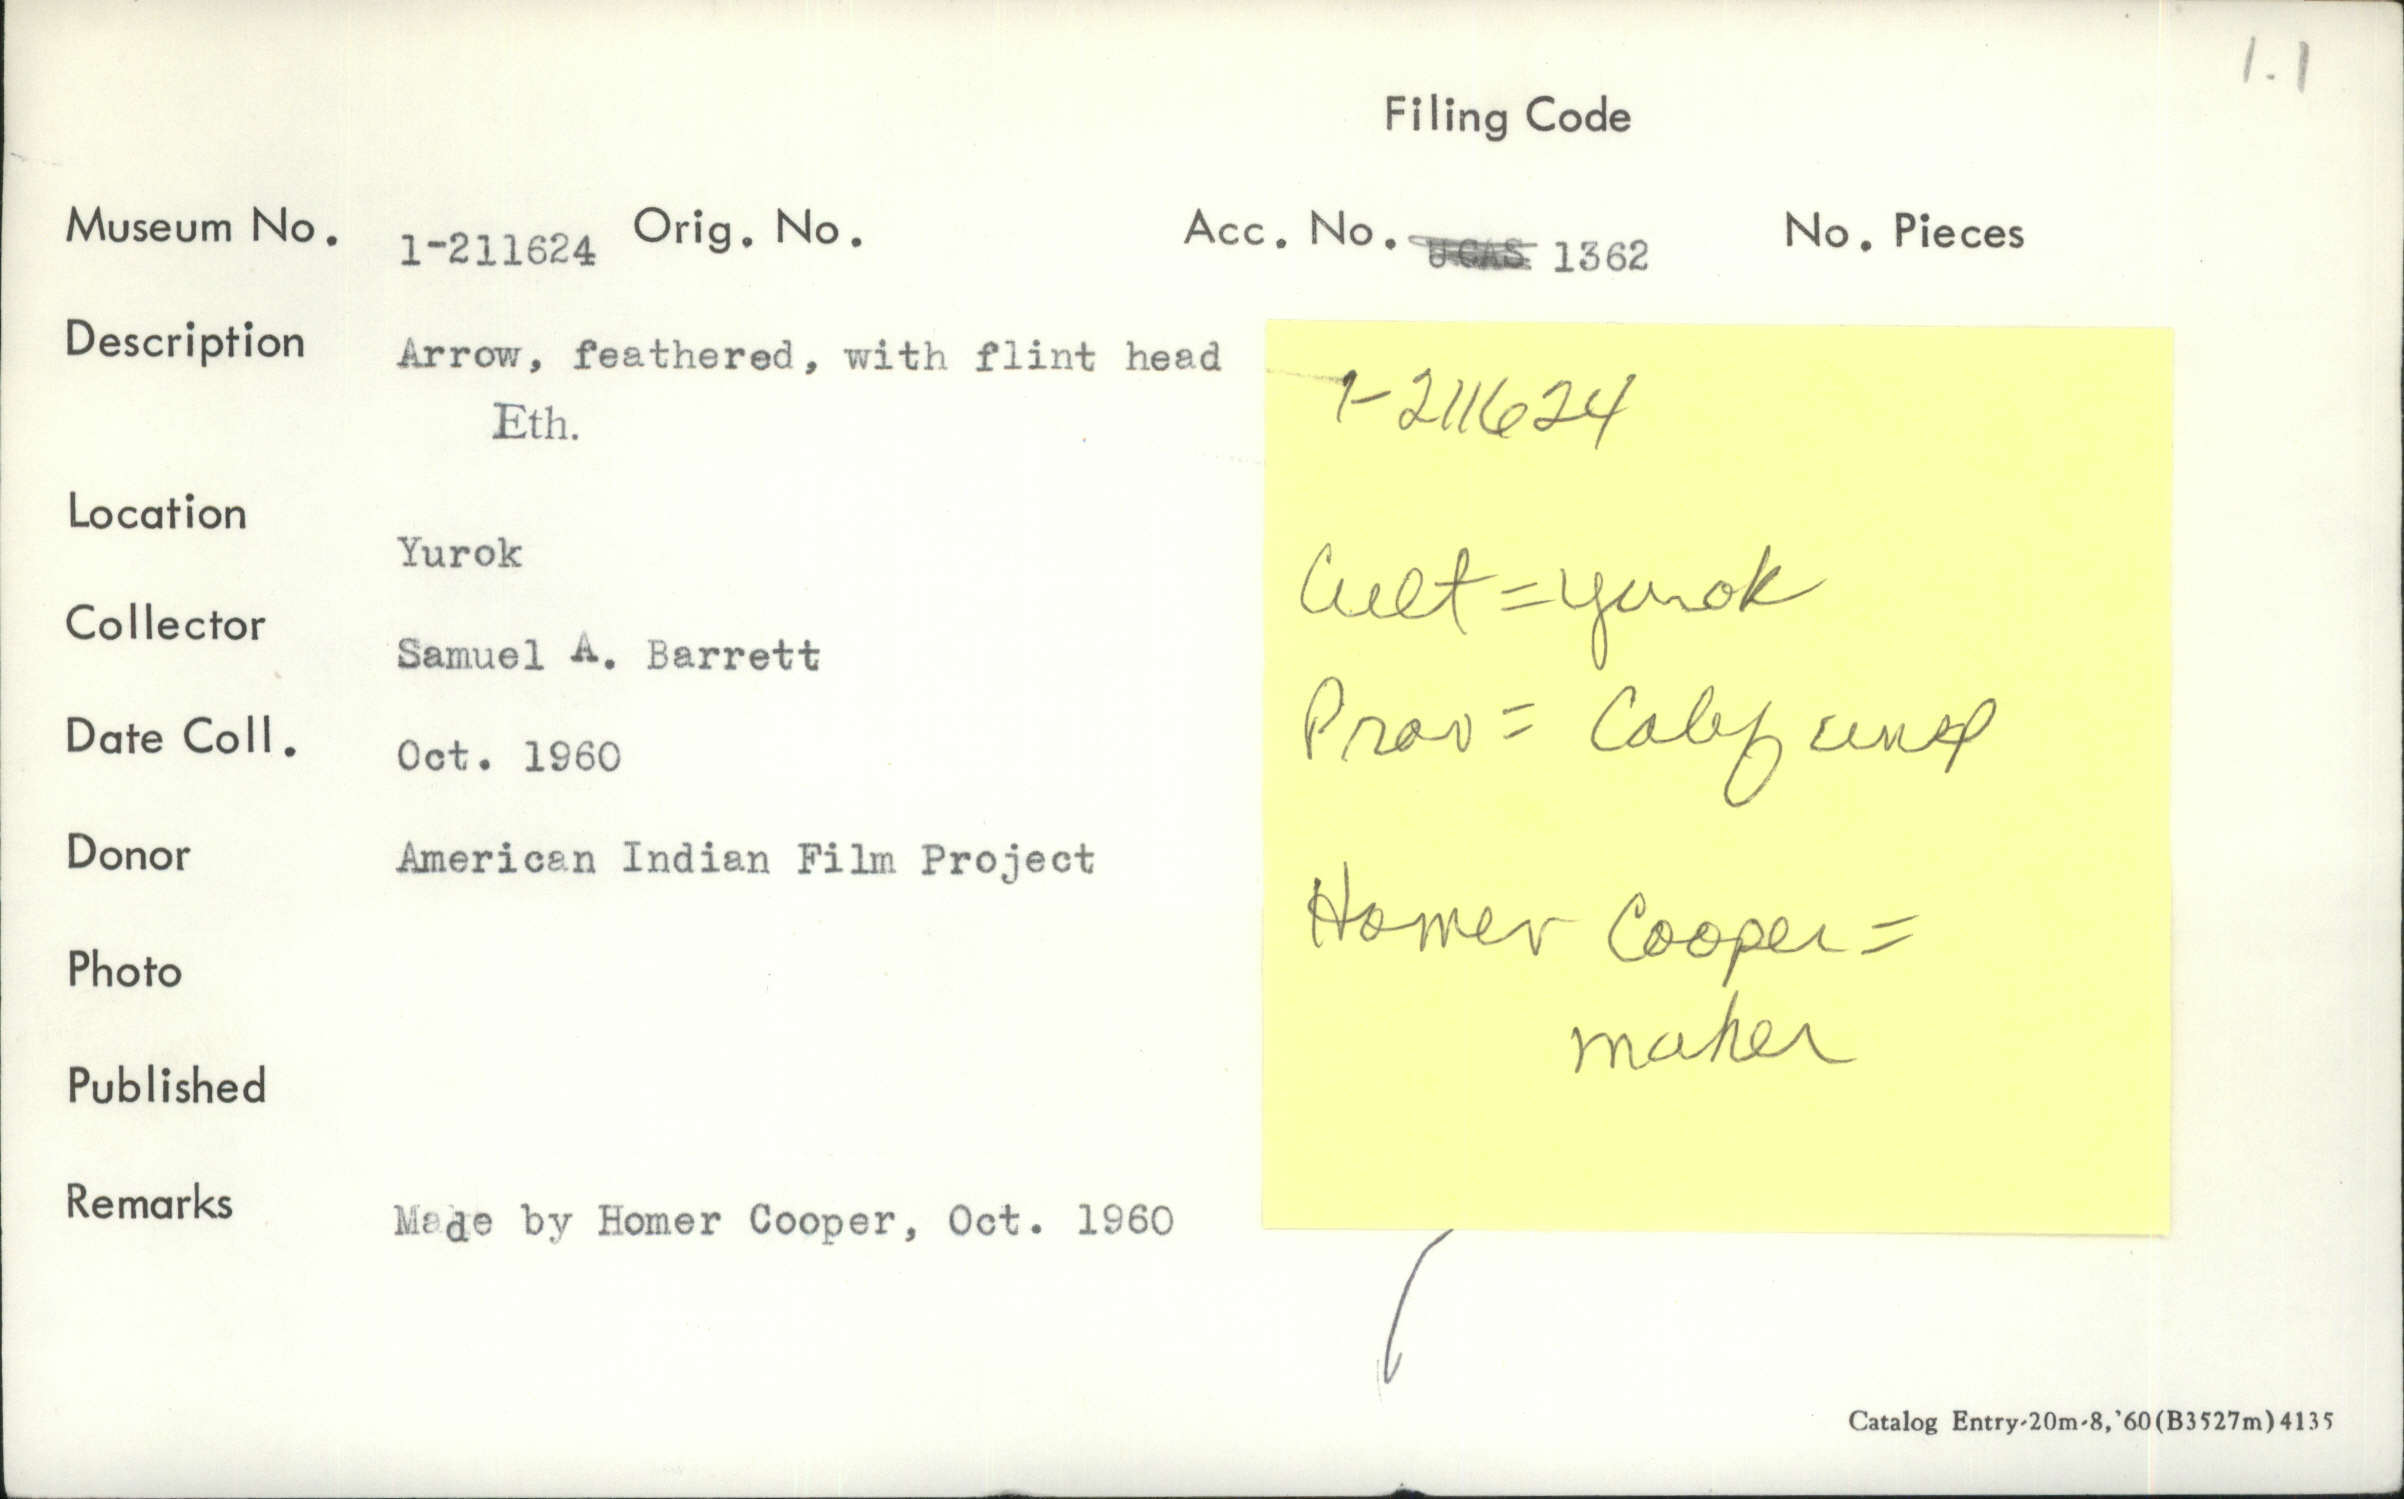 1.1
Filing Code
Museum No. 1-211624 Orig. No. Acc. No. UCAS 1362 No. Pieces
Description Arrow, feathered, with flint head
Eth.
Location
Yurok
Collector
Samuel A. Barrett
Date Coll.
Oct. 1960
Donor American Indian Film Project
Photo
Published
Remarks
Made by Homer Cooper, Oct. 1960
1-211624
Cult = Yurok
Prov = Calif
Homer Cooper =
maker
Catalog Entry-20m-8,'60(B3527m)4135